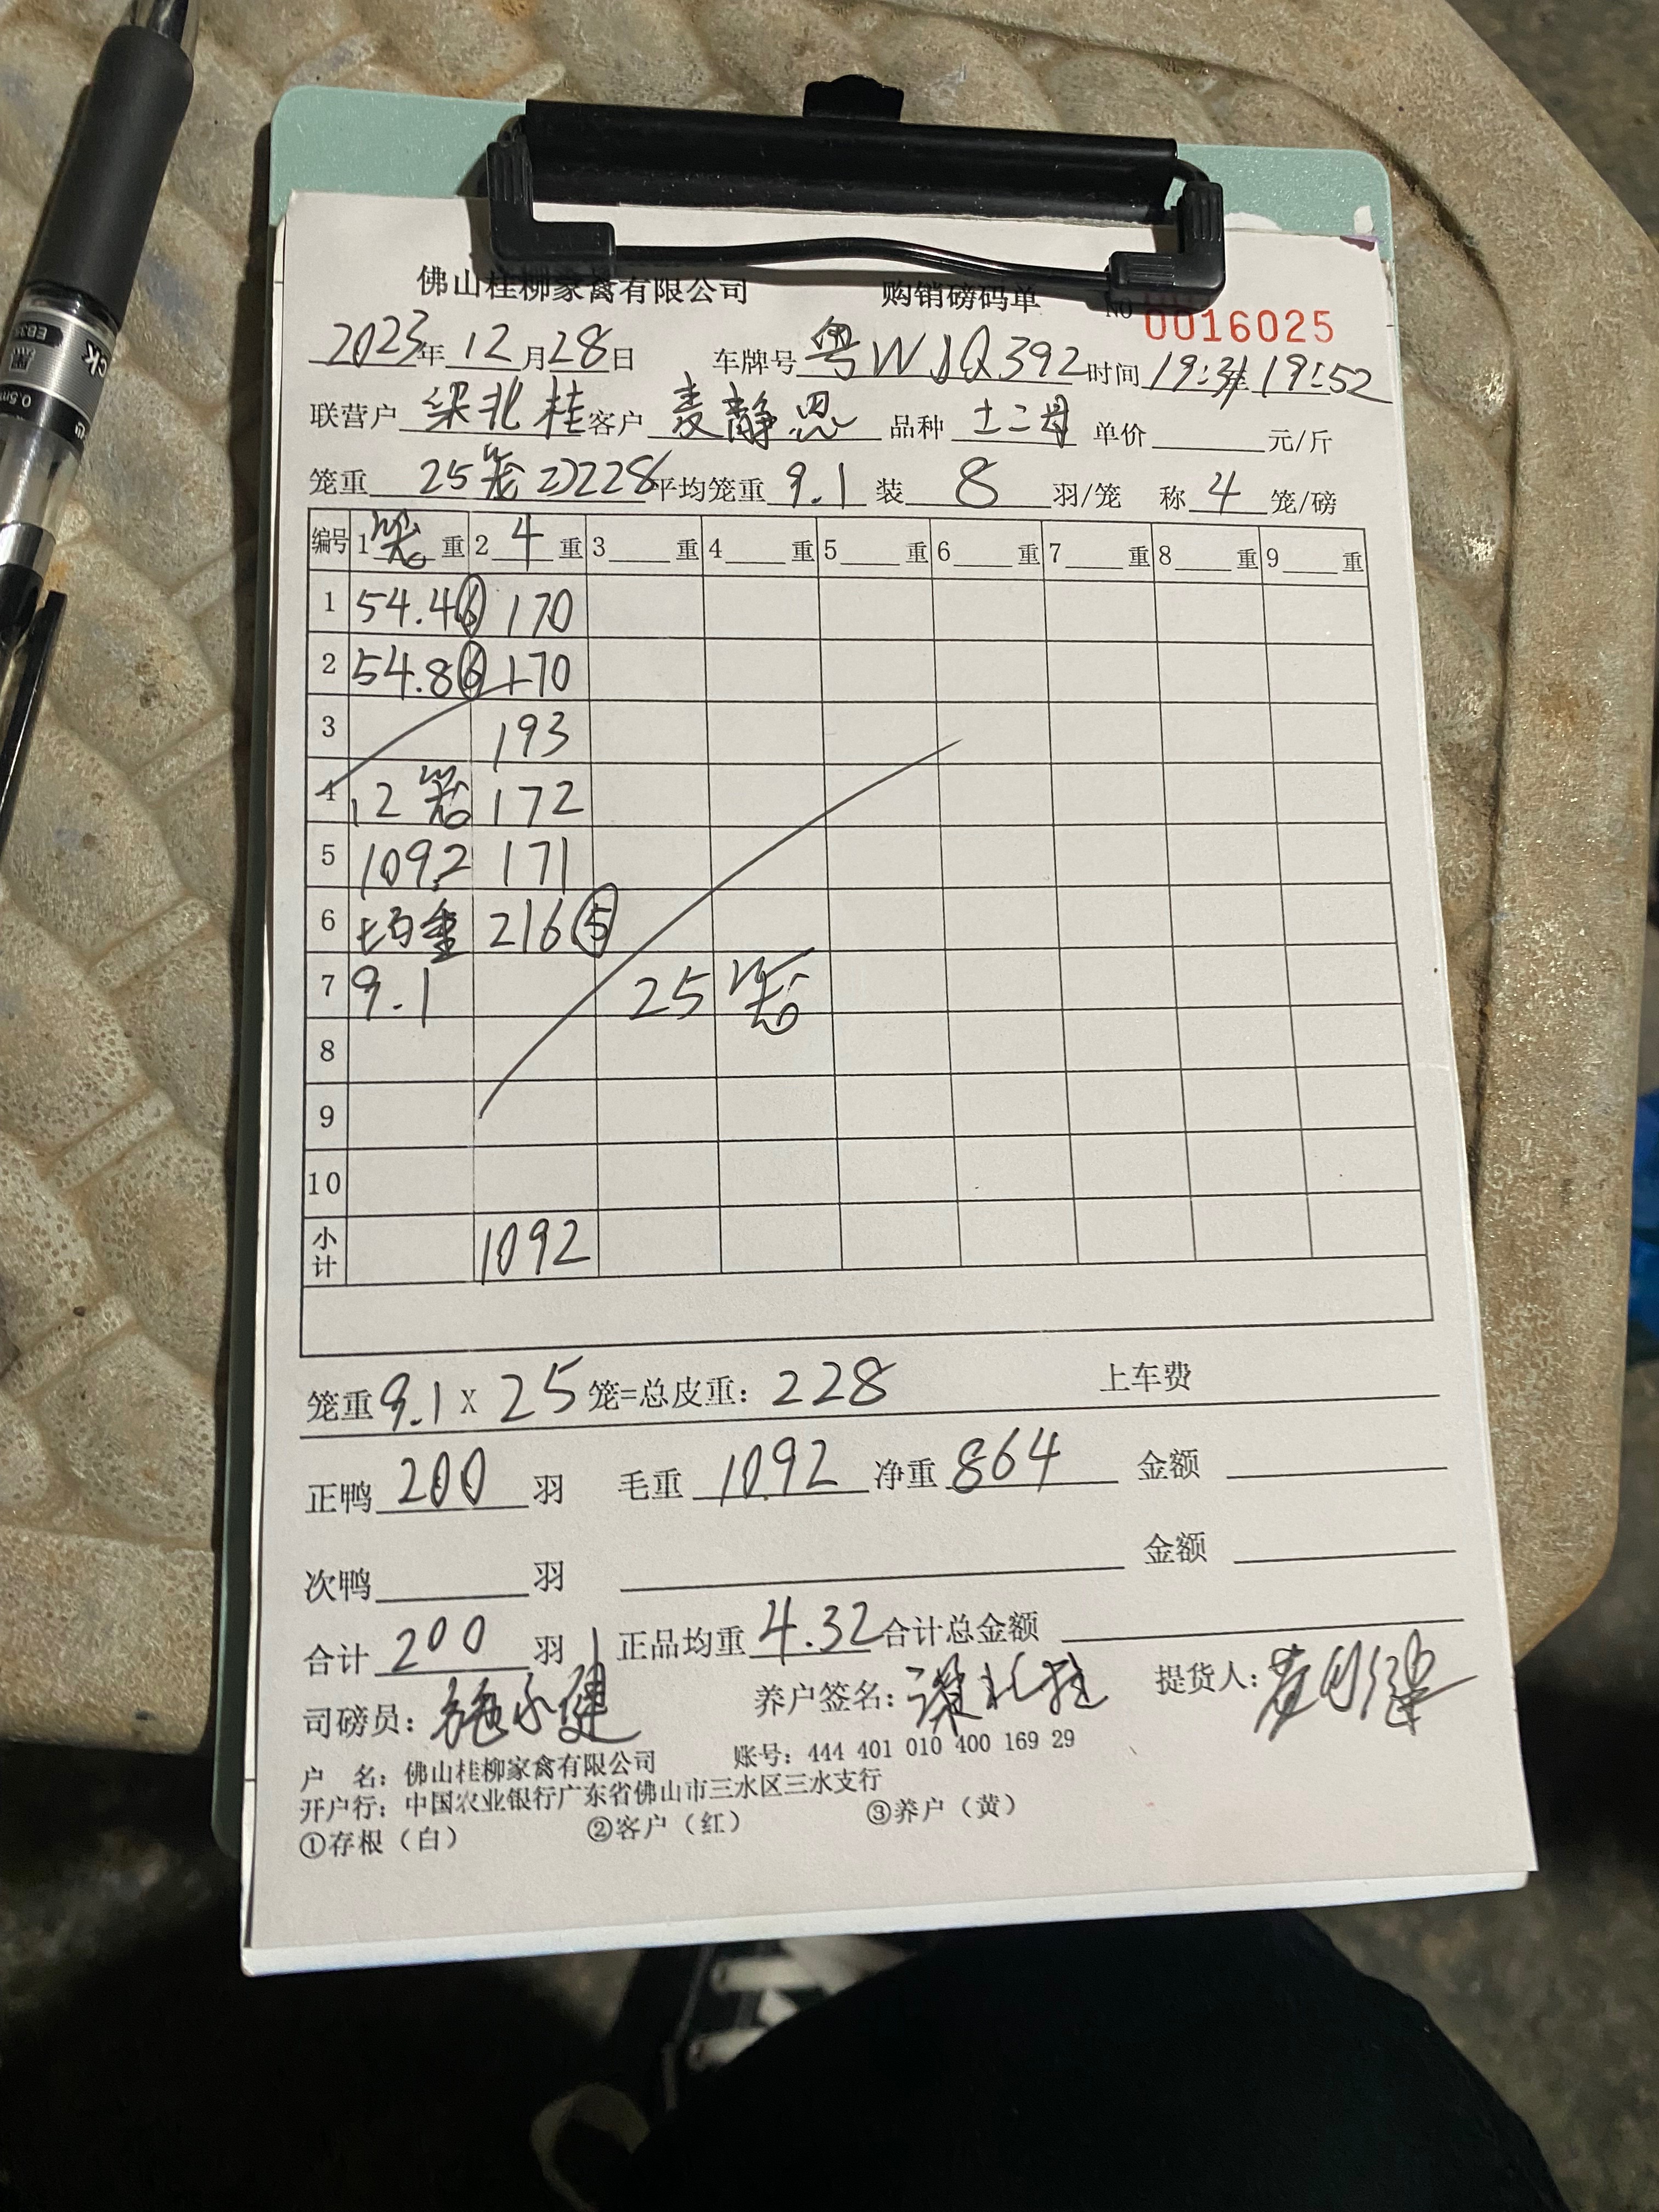 佛山桂柳家禽有限公司 购销磅码单 NO 0016025
2023年12月28日 车牌号 粤WJQ392 时间 19:31至19:52
联营户 梁北桂 客户 麦静恩 品种 土二母 单价 元/斤
笼重 25笼 228 平均笼重 9.1 装 8 羽/笼 称 4 笼/磅
编号 1 笼 重 2 4 重 3 重 4 重 5 重 6 重 7 重 8 重 9 重
1 54.4 ⑥ 170
2 54.8 ⑥ 170
3 193
4 12笼 172
5 109.2 171
6 均重 216 ⑤
7 9.1 25笼
8
9
10
小计 1092
笼重 9.1 X 25 笼=总皮重: 228 上车费
正鸭 200 羽 毛重 1092 净重 864 金额
次鸭 羽 金额
合计 200 羽 正品均重 4.32 合计总金额
司磅员: 养户签名: 提货人:
户 名: 佛山桂柳家禽有限公司 账号: 444 401 010 400 169 29
开户行: 中国农业银行广东省佛山市三水区三水支行
①存根（白） ②客户（红） ③养户（黄）
0.5m